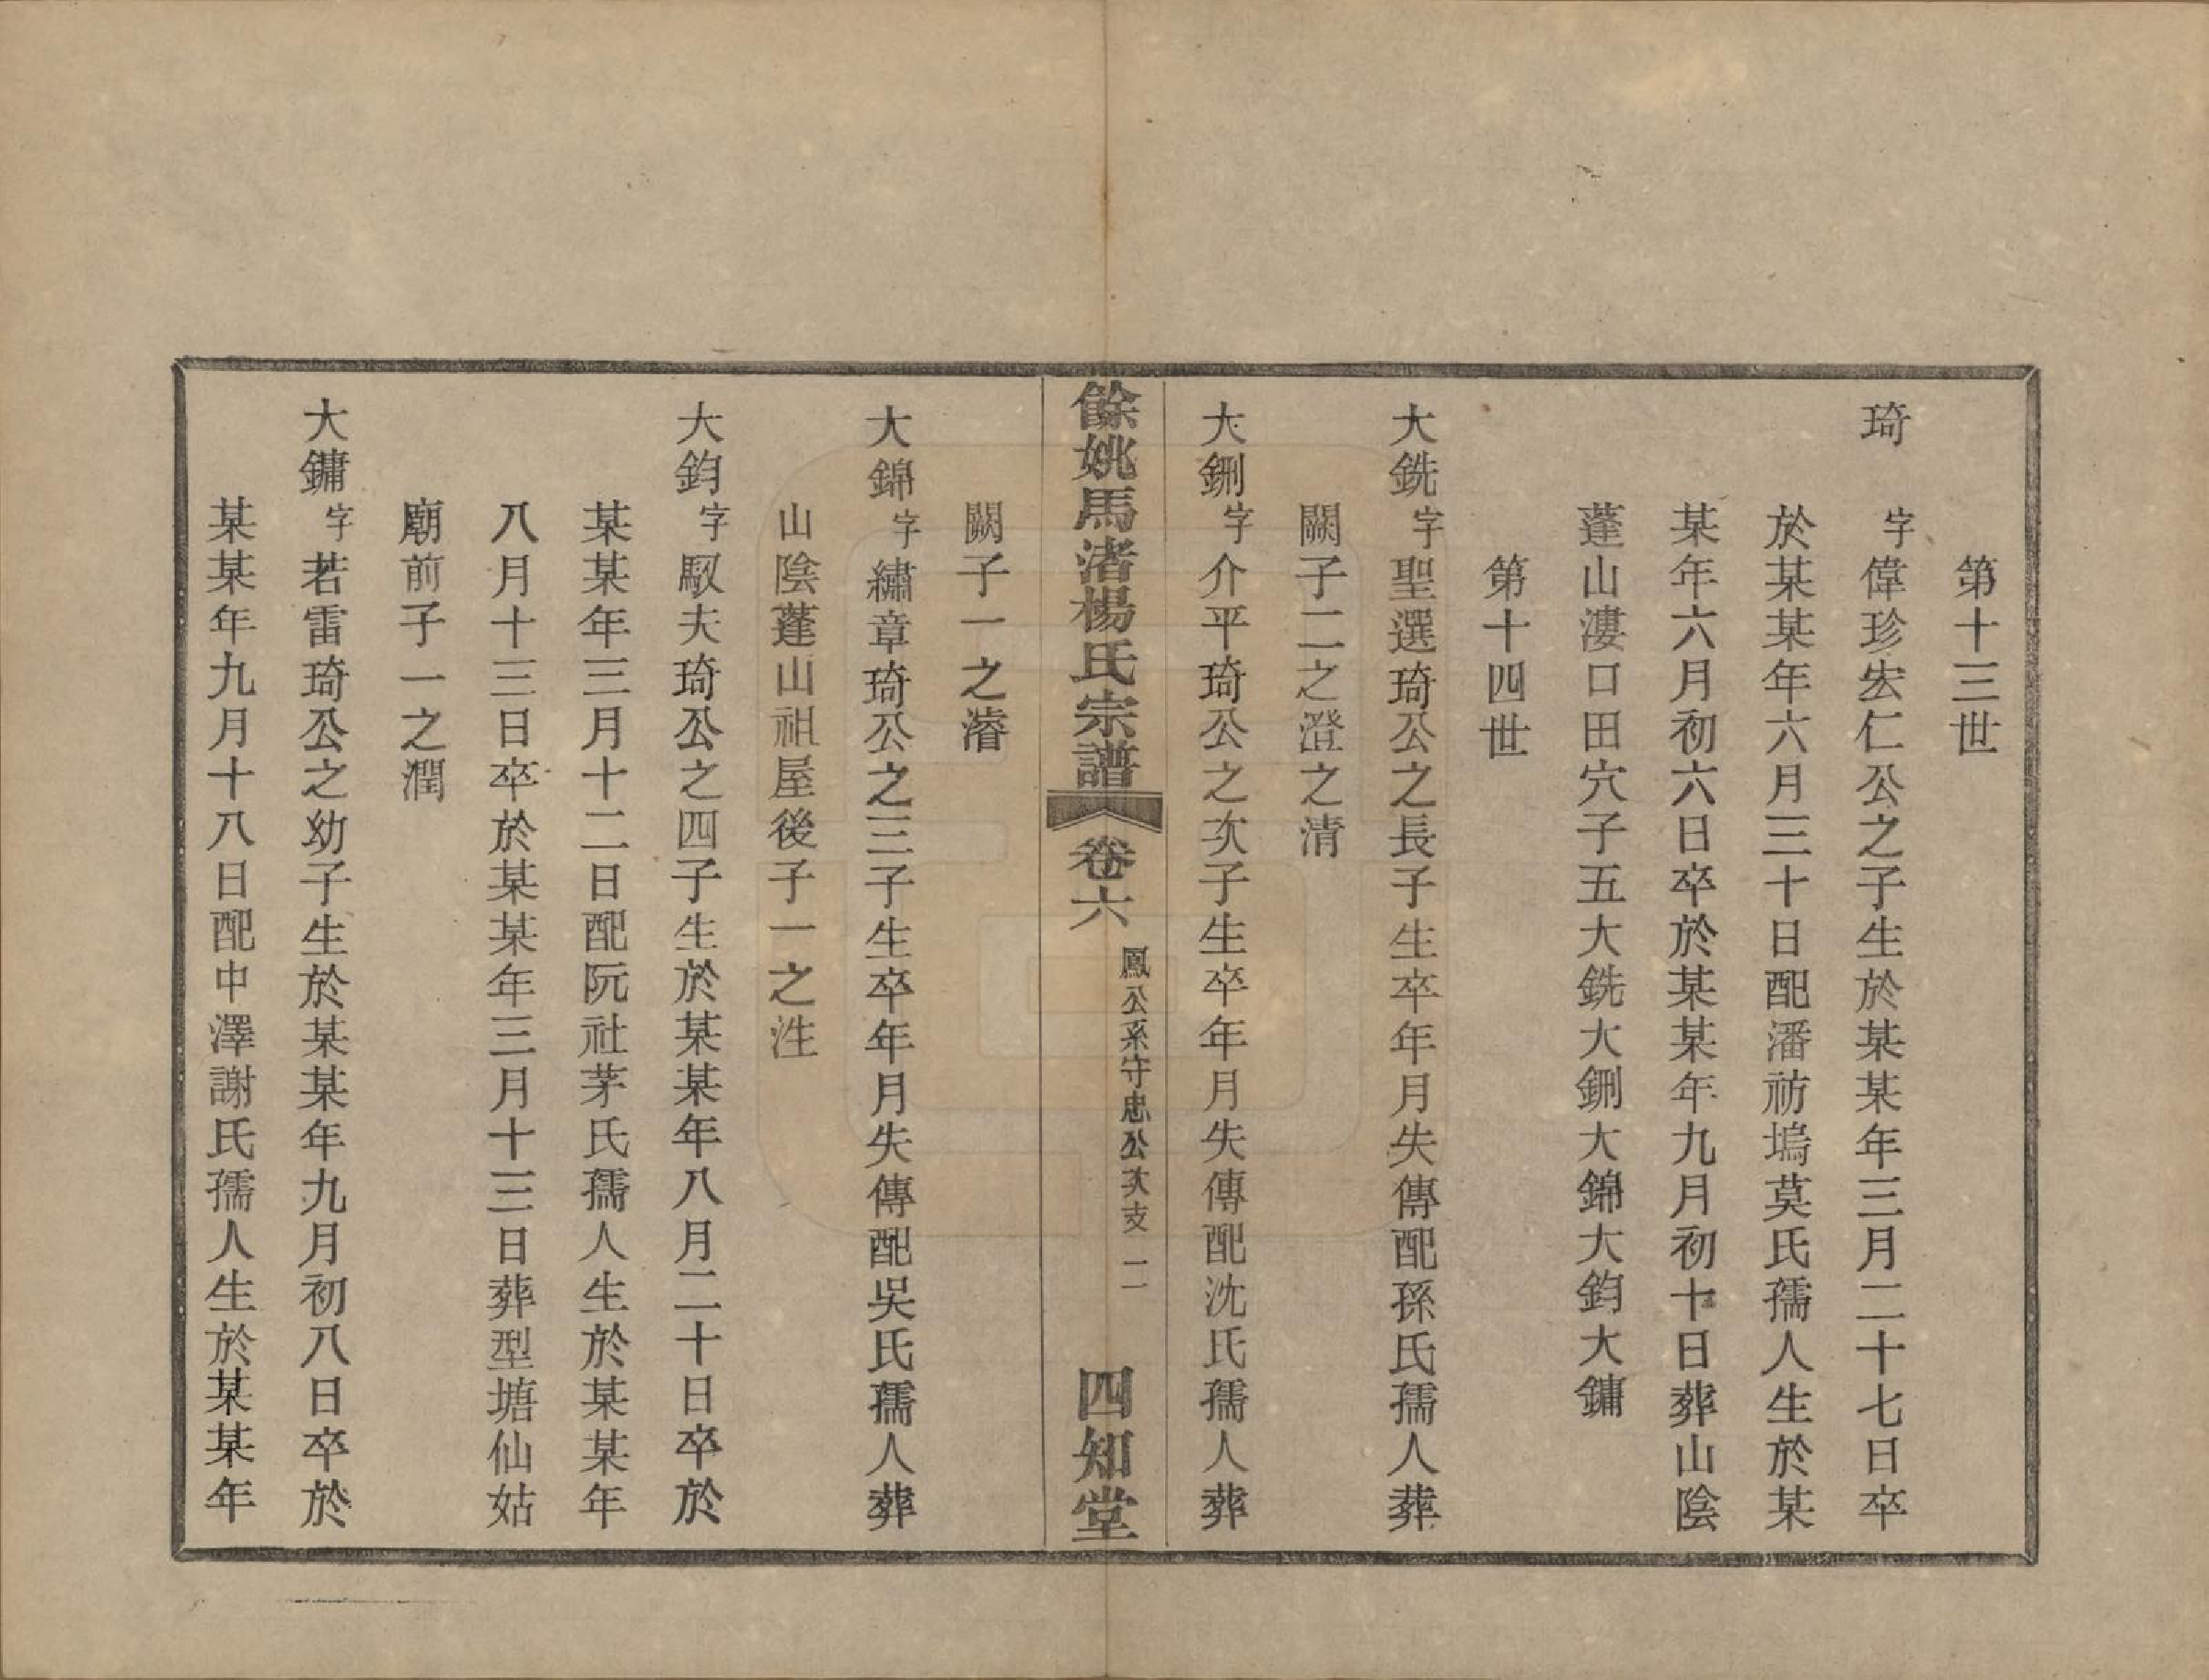 第十三世
琦　字偉珍宏仁公之子生於某某年三月二十七日卒
於某某年六月三十日配潘祊塢莫氏孺人生於某
某年六月初六日卒於某某年九月初十日葬山陰
蓬山漊口田穴子五大銑大鉶大錦大鈞大鏞
第十四世
大銑字聖選琦公之長子生卒年月失傳配孫氏孺人葬
闕子二之澄之清
大鉶字介平琦公之次子生卒年月失傳配沈氏孺人葬
餘姚馬渚楊氏宗譜　卷六　鳳公系守忠公次支　二　四知堂
闕子一之濬
大錦字繡章琦公之三子生卒年月失傳配吳氏孺人葬
山陰蓬山祖屋後子一之泩
大鈞字馭夫琦公之四子生於某某年八月二十日卒於
某某年三月十二日配阮社茅氏孺人生於某某年
八月十三日卒於某某年三月十三日葬型塘仙姑
廟前子一之潤
大鏞字若雷琦公之幼子生於某某年九月初八日卒於
某某年九月十八日配中澤謝氏孺人生於某某年